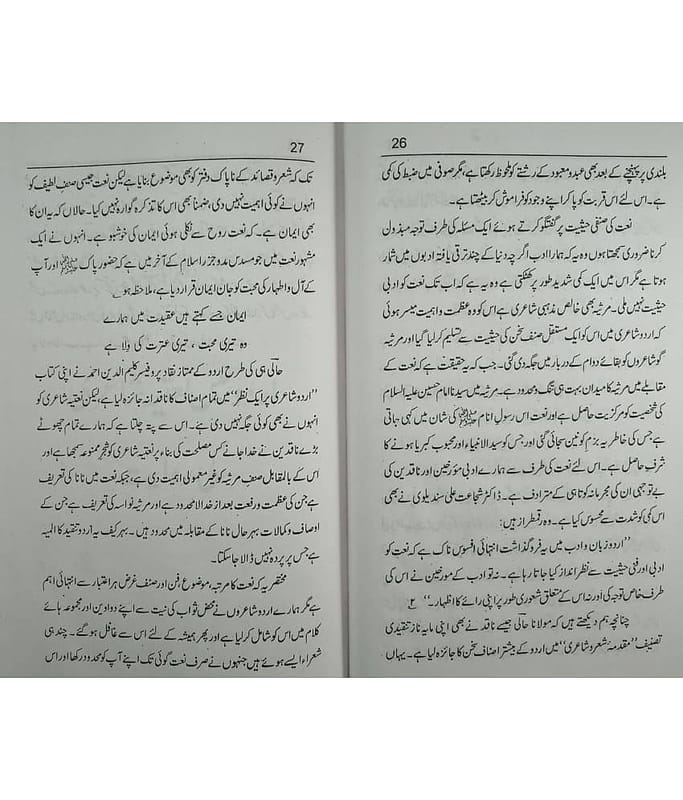 26
بلندی پر پہنچنے کے بعد بھی عبد و معبود کے رشتے کو ملحوظ رکھتا ہے، مگر صوفی میں ضبط کی کمی
ہے۔ اس لئے اس قربت کو پا کر اپنے وجود کو فراموش کر بیٹھتا ہے۔
نعت کی صنفی حیثیت پر گفتگو کرتے ہوئے ایک مسئلہ کی طرف توجہ مبذول
کرنا ضروری سمجھتا ہوں وہ یہ کہ ہمارا ادب اگر چہ دنیا کے چند ترقی یافتہ ادبوں میں شمار
ہوتا ہے مگر اس میں ایک کمی شدید طور پر کھٹکتی ہے وہ یہ ہے کہ اب تک نعت کو ادبی
حیثیت نہیں ملی۔ مرثیہ بھی خالص مذہبی شاعری ہے اس کو وہ عظمت و اہمیت میسر ہوئی
کہ اردو شاعری میں اس کو ایک مستقل صنف سخن کی حیثیت سے تسلیم کر لیا گیا اور مرثیہ
گو شاعروں کو بقائے دوام کے دربار میں جگہ دی گئی۔ جب کہ یہ حقیقت ہے کہ نعت کے
مقابلے میں مرثیہ کا میدان بہت ہی تنگ و محدود ہے۔ مرثیہ میں سیدنا امام حسین علیہ السلام
کی شخصیت کو مرکزیت حاصل ہے اور نعت اس رسول انام ﷺ کی شان میں کہی جاتی
ہے جس کی خاطر یہ بزم کونین سجائی گئی اور جس کو سید الانبیاء اور محبوب کبریا ہونے کا
شرف حاصل ہے۔ اس لئے نعت کی طرف سے ہمارے ادبی مؤرخین اور ناقدین کی
بے توجہی ان کی مجرمانہ کوتاہی کے مترادف ہے۔ ڈاکٹر شجاعت علی سندیلوی نے بھی
اس کمی کو شدت سے محسوس کیا ہے۔ وہ رقمطراز ہیں:
”اردو زبان و ادب میں یہ فروگذاشت انتہائی افسوس ناک ہے کہ نعت کو
ادبی اور فنی حیثیت سے نظر انداز کیا جاتا رہا ہے۔ نہ تو ادب کے مورخین نے اس کی
طرف خاص توجہ کی اور نہ اس کے متعلق شعوری طور پر اپنی رائے کا اظہار۔“ ۲؎
چنانچہ ہم دیکھتے ہیں کہ مولانا حالی جیسے ناقد نے بھی اپنی مایہ ناز تنقیدی
تصنیف ”مقدمۂ شعر و شاعری“ میں اردو کے بیشتر اصناف سخن کا جائزہ لیا ہے۔ یہاں
27
تک کہ شعر و قصائد کے ناپاک دفتر کو بھی موضوع بنایا ہے لیکن نعت جیسی صنف لطیف کو
انہوں نے کوئی اہمیت نہیں دی، ضمناً بھی اس کا تذکرہ گوارہ نہیں کیا۔ حالاں کہ یہ ان کا
بھی ایمان ہے۔ کہ نعت روح سے نکلی ہوئی ایمان کی خوشبو ہے۔ انہوں نے ایک
مشہور نعت میں جو مسدس مدو جزر اسلام کے آخر میں ہے کہ حضور پاک ﷺ اور آپ
کے آل و اطہار کی محبت کو جان ایمان قرار دیا ہے، ملاحظہ ہو۔
ایمان جسے کہتے ہیں عقیدت میں ہمارے
وہ تیری محبت ، تیری عترت کی ولا ہے
حالی ہی کی طرح اردو کے ممتاز نقاد پروفیسر کلیم الدین احمد نے اپنی کتاب
”اردو شاعری پر ایک نظر“ میں تمام اصناف کا ناقدانہ جائزہ لیا ہے، لیکن نعتیہ شاعری کو
انہوں نے بھی کوئی جگہ نہیں دی ہے۔ اس سے پتہ چلتا ہے کہ ہمارے تمام چھوٹے
بڑے ناقدین نے خدا جانے کس مصلحت کی بناء پر نعتیہ شاعری کو شجر ممنوعہ سمجھا ہے اور
اس کے بالمقابل صنف مرثیہ کو غیر معمولی اہمیت دی ہے، جبکہ نعت میں نانا کی تعریف
ہے جن کی عظمت و رفعت بعد از خدا لامحدود ہے اور مرثیہ نواسہ کی تعریف ہے جن کے
اوصاف و کمالات بہر حال نانا کے مقابلہ میں محدود ہیں۔ بہر کیف یہ اردو تنقید کا المیہ
ہے جس پر پردہ نہیں ڈالا جا سکتا۔
مختصر یہ کہ نعت کا مرتبہ، موضوع، فن اور صنف غرض ہر اعتبار سے انتہائی اہم
ہے مگر ہمارے اردو شاعروں نے محض ثواب کی نیت سے اپنے دواوین اور مجموعہ ہائے
کلام میں اس کو شامل کر لیا ہے اور پھر ہمیشہ کے لئے اس سے غافل ہو گئے۔ چند ہی
شعراء ایسے ہوئے ہیں جنہوں نے صرف نعت گوئی تک اپنے آپ کو محدود رکھا اور اس